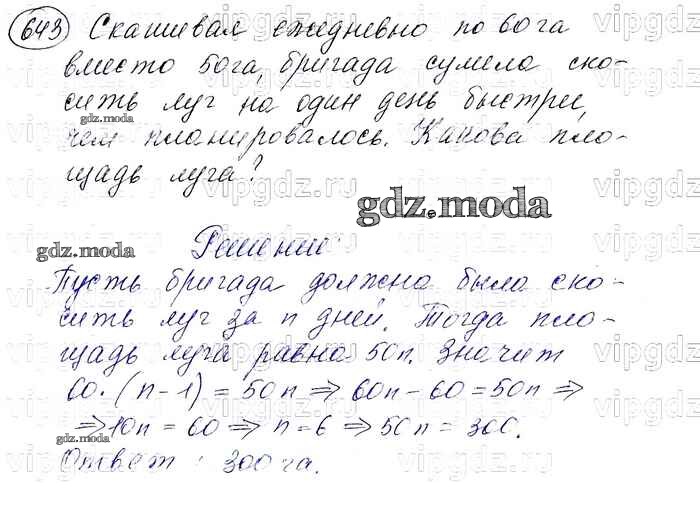 643 Скашивая ежедневно по 60га
вместо 50га, бригада сумела ско-
сить луг на один день быстрей,
gdz.moda
чем планировалось. Какова пло-
щадь луга?
gdz.moda
gdz.moda
Решение:
Пусть бригада должна была ско-
сить луг за n дней. Тогда пло-
щадь луга равна 50n. Значит
60·(n-1)=50n ⇒ 60n-60=50n ⇒
⇒10n=60 ⇒ n=6 ⇒ 50n=300.
gdz.moda
Ответ: 300га.